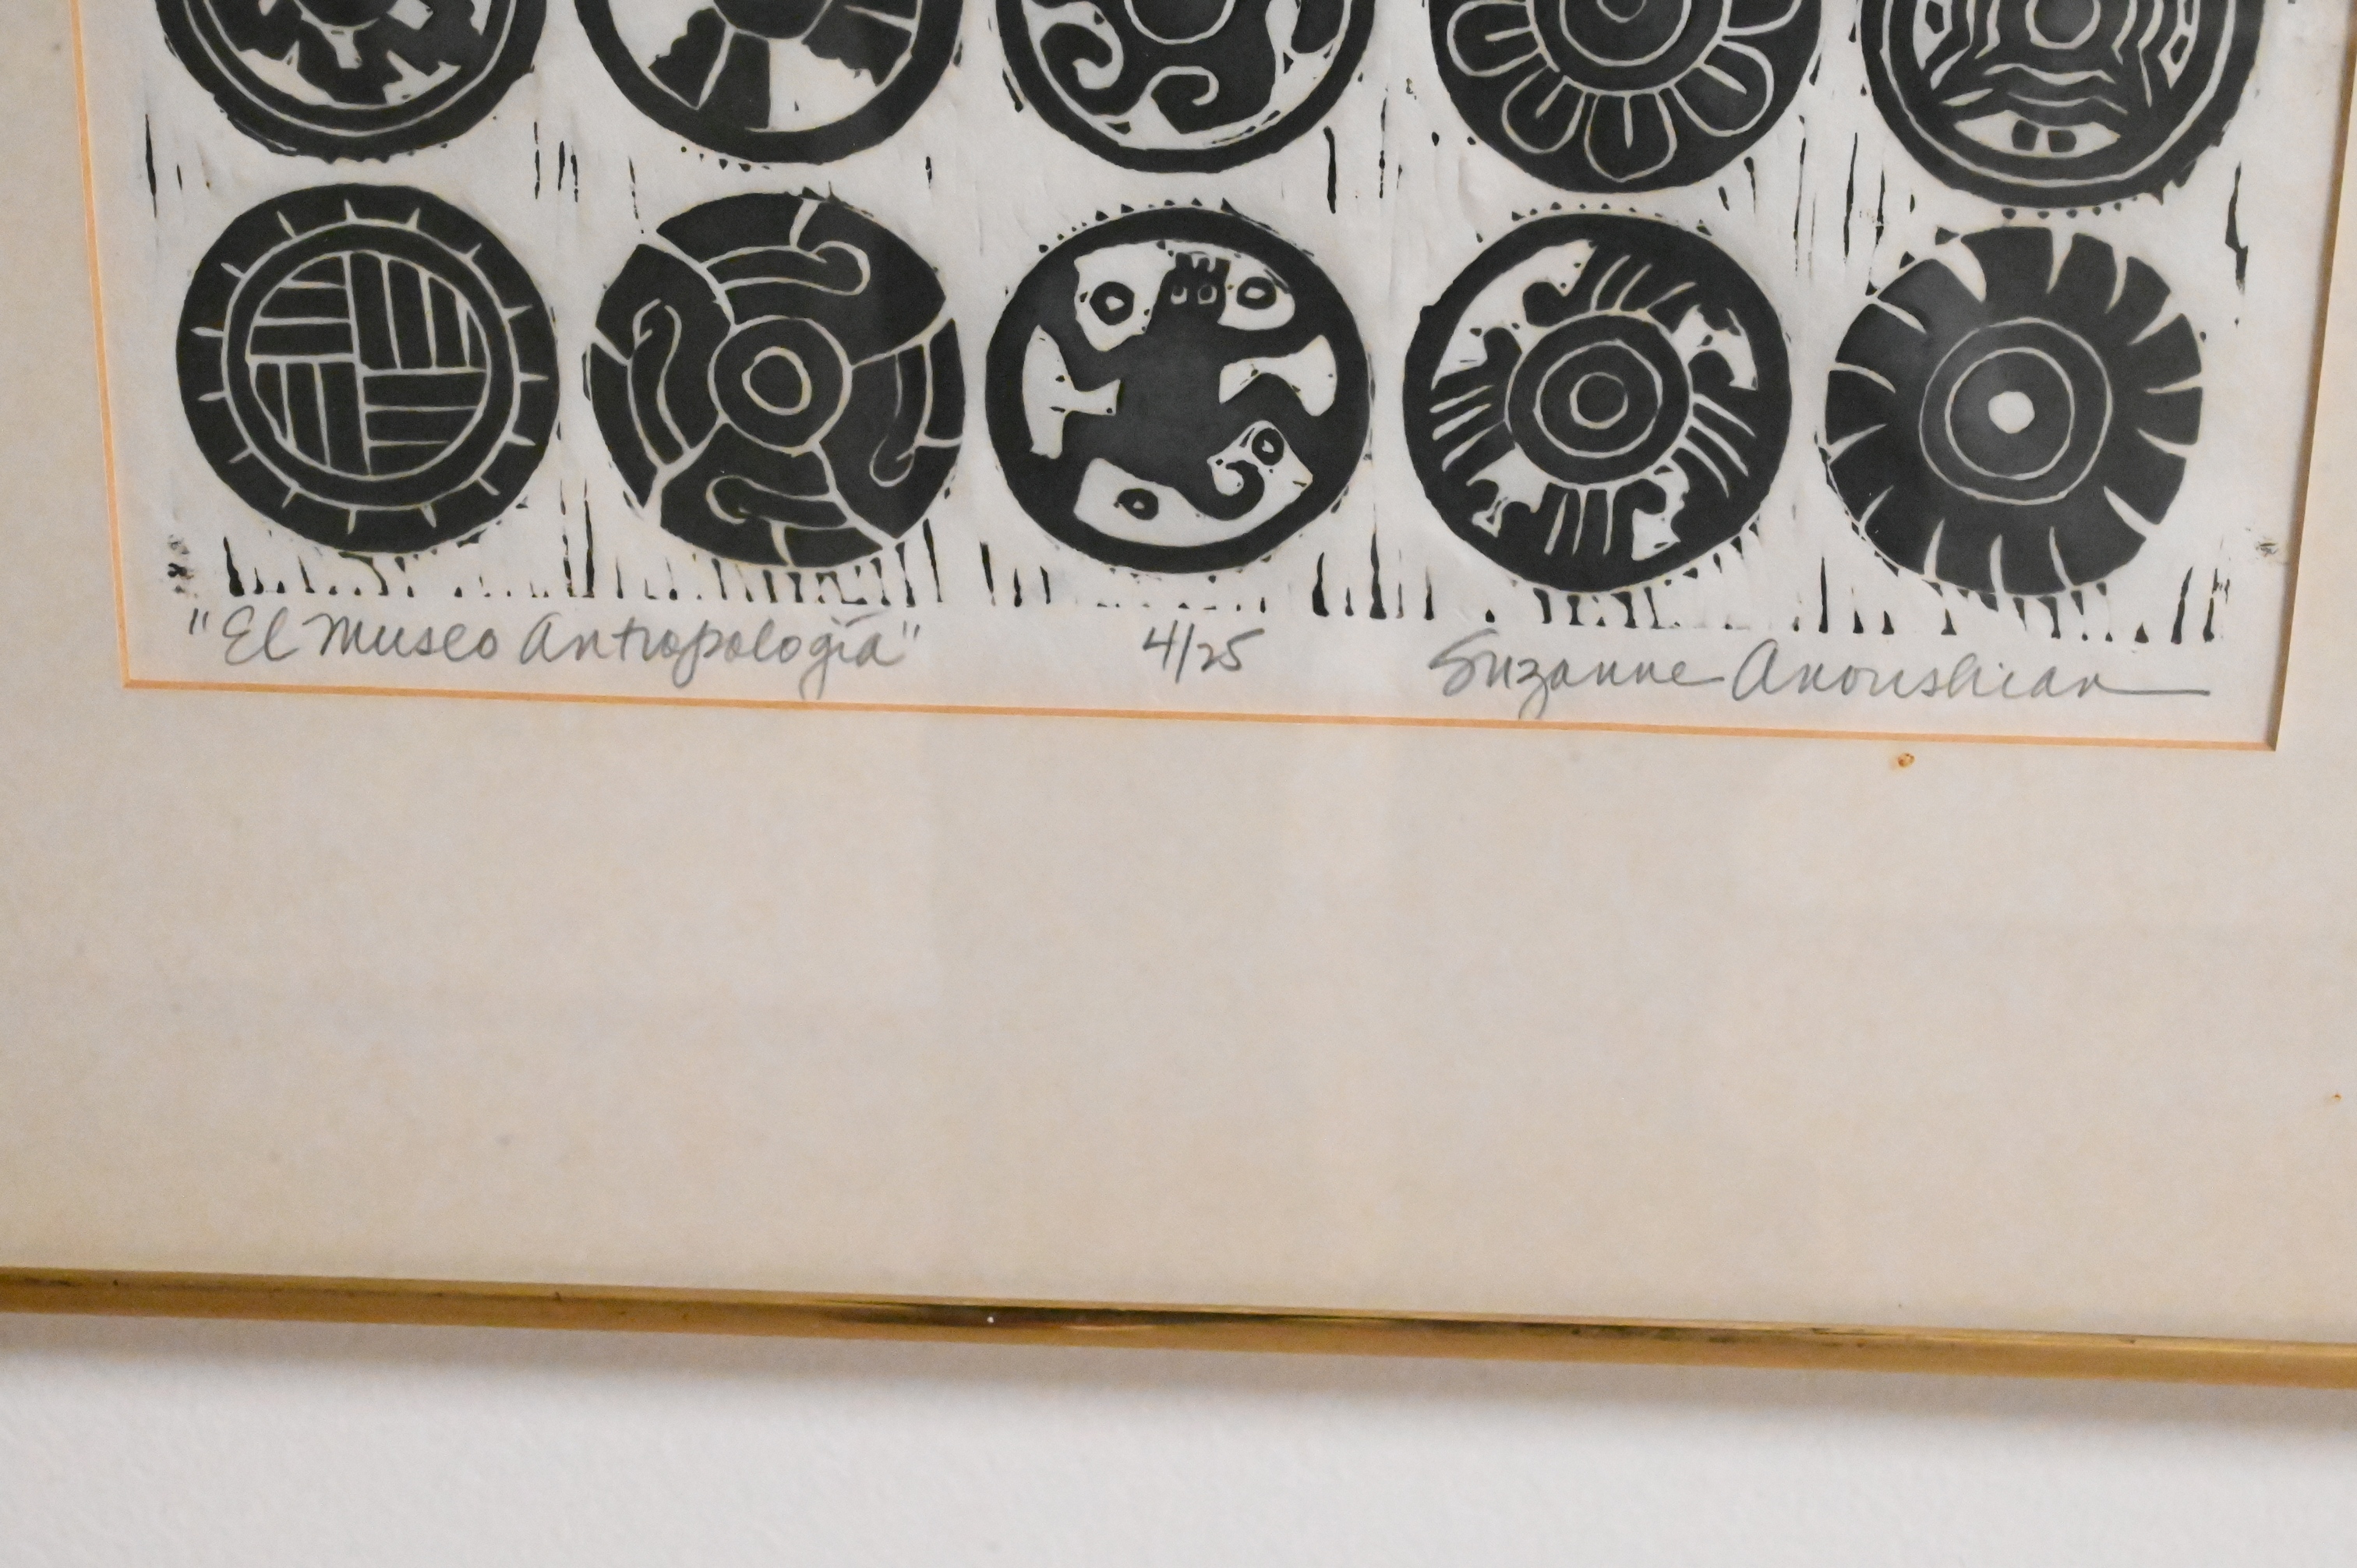 "El Museo Antropología" 4/25 Suzanne Anoushian